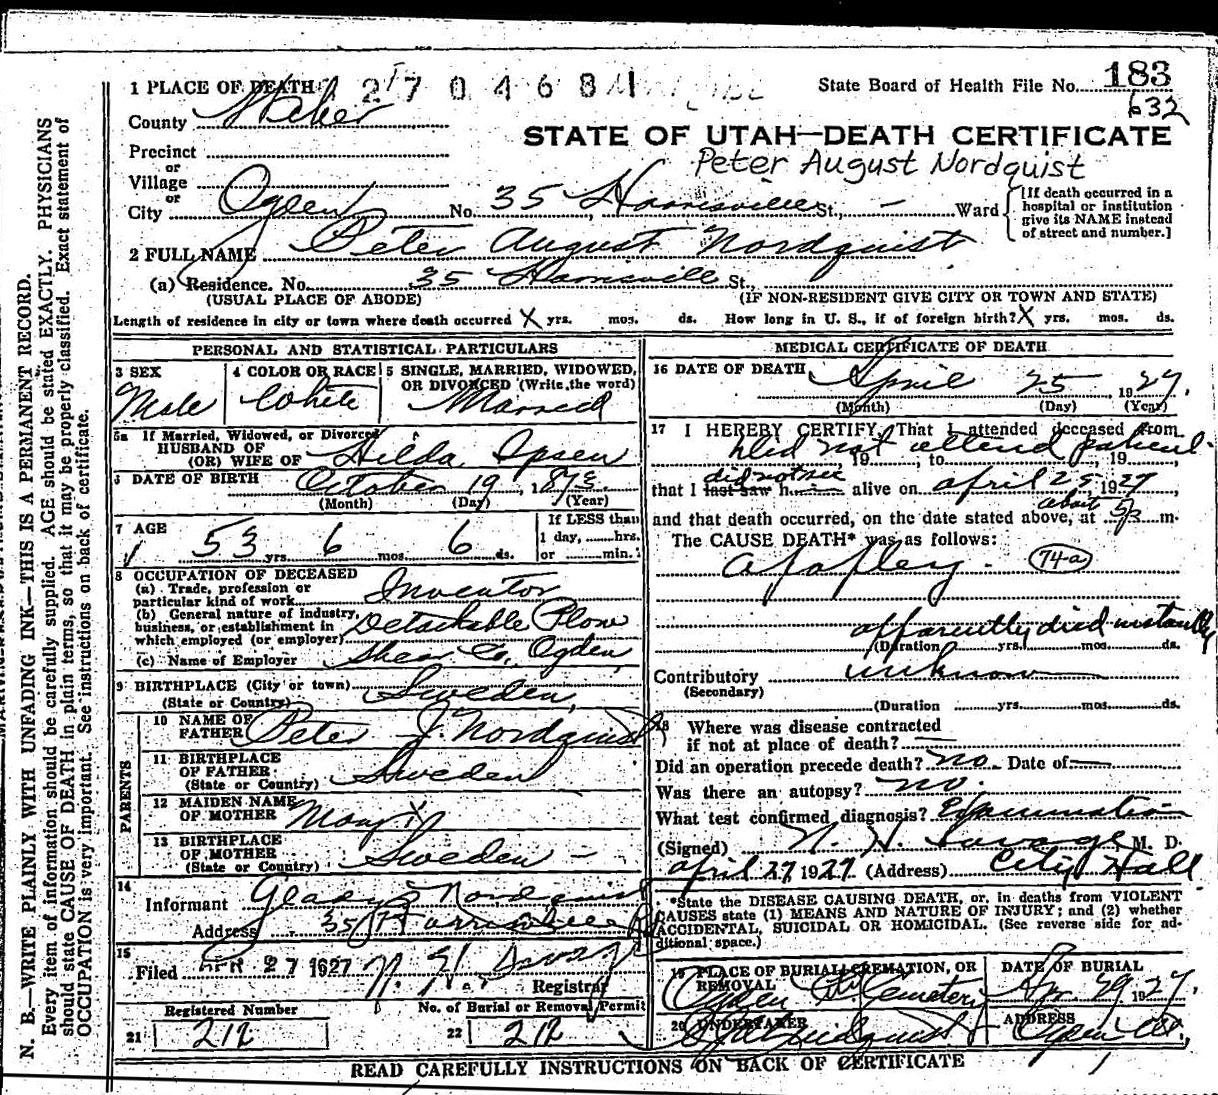 1 PLACE OF DEATH 2 7 0 4 6 8
State Board of Health File No. 183
632
County Weber
STATE OF UTAH—DEATH CERTIFICATE
Precinct
Peter August Nordquist
or
Village
or
City Ogden No. 35 Harrisville St., — Ward
[If death occurred in a hospital or institution give its NAME instead of street and number.]
2 FULL NAME Peter August Nordquist
(a) Residence. No. 35 Harrisville St.,
(USUAL PLACE OF ABODE) (IF NON-RESIDENT GIVE CITY OR TOWN AND STATE)
Length of residence in city or town where death occurred X yrs. mos. ds. How long in U. S., if of foreign birth? X yrs. mos. ds.
PERSONAL AND STATISTICAL PARTICULARS
3 SEX 4 COLOR OR RACE 5 SINGLE, MARRIED, WIDOWED,
OR DIVORCED (Write the word)
Male White Married
5a If Married, Widowed, or Divorced
HUSBAND OF
(OR) WIFE OF Hilda Ipsen
6 DATE OF BIRTH October 19, 1873
(Month) (Day) (Year)
7 AGE 53 yrs. 6 mos. 6 ds.
If LESS than
1 day, hrs.
or min.
8 OCCUPATION OF DECEASED
(a) Trade, profession or
particular kind of work Inventor
(b) General nature of industry,
business, or establishment in
which employed (or employer) Detachable Plow
(c) Name of Employer Shear Co. Ogden
9 BIRTHPLACE (City or town)
(State or Country) Sweden
PARENTS
10 NAME OF
FATHER Peter J. Nordquist
11 BIRTHPLACE
OF FATHER
(State or Country) Sweden
12 MAIDEN NAME
OF MOTHER Mary X
13 BIRTHPLACE
OF MOTHER
(State or Country) Sweden —
14
Informant Gladys Nordquist
Address 35 Harrisville
15
Filed APR 27 1927
Registrar
Registered Number No. of Burial or Removal Permit
21 212 22 212
MEDICAL CERTIFICATE OF DEATH
16 DATE OF DEATH April 25, 1927
(Month) (Day) (Year)
17 I HEREBY CERTIFY, That I attended deceased from
Did not attend patient
19, to, 19
did not see
that I last saw h alive on April 25, 1927
about
and that death occurred, on the date stated above, at m.
The CAUSE DEATH* was as follows:
Apoplexy. 74-a
apparently died instantly
(Duration yrs. mos. ds.
Contributory unknown
(Secondary)
(Duration yrs. mos. ds.
18 Where was disease contracted
if not at place of death? —
Did an operation precede death? no Date of —
Was there an autopsy? no.
What test confirmed diagnosis? Examination
(Signed) M. D.
April 27 1927 (Address) City Hall
*State the DISEASE CAUSING DEATH, or, in deaths from VIOLENT
CAUSES state (1) MEANS AND NATURE OF INJURY; and (2) whether
ACCIDENTAL, SUICIDAL OR HOMICIDAL. (See reverse side for ad-
ditional space.)
19 PLACE OF BURIAL, CREMATION, OR
REMOVAL
Ogden City Cemetery
DATE OF BURIAL
Apr. 29, 1927.
20 UNDERTAKER
ADDRESS
Ogden Ut.
READ CAREFULLY INSTRUCTIONS ON BACK OF CERTIFICATE
N. B.—WRITE PLAINLY WITH UNFADING INK—THIS IS A PERMANENT RECORD.
Every item of information should be carefully supplied. AGE should be stated EXACTLY. PHYSICIANS
should state CAUSE OF DEATH in plain terms, so that it may be properly classified. Exact statement of
OCCUPATION is very important. See instructions on back of certificate.